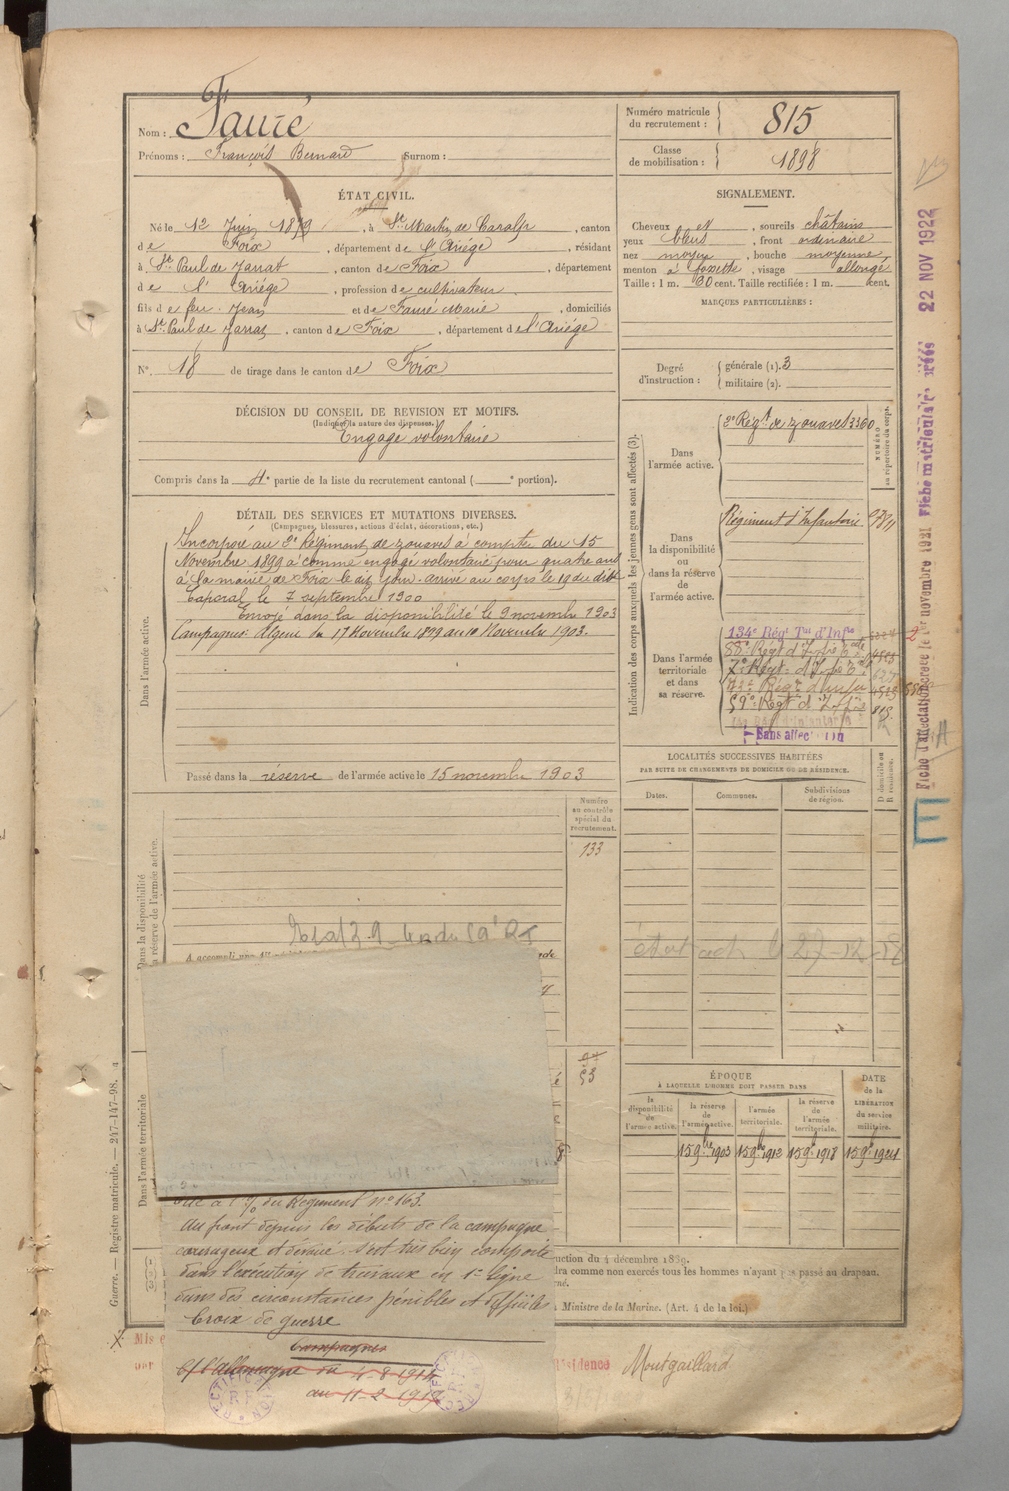 Nom : Fauré
Prénoms : François Bernard Surnom :
Numéro matricule du recrutement : 815
Classe de mobilisation : 1898
ÉTAT CIVIL.
Né le 12 Juin 1879, à St Martin de Caralp, canton
de Foix, département de l'Ariége, résidant
à St Paul de Jarrat, canton de Foix, département
de l'Ariége, profession de cultivateur
fils de feu Jean et de Fauré Marie, domiciliés
à St Paul de Jarrat, canton de Foix, département de l'Ariége
N° 18 de tirage dans le canton de Foix
DÉCISION DU CONSEIL DE REVISION ET MOTIFS.
(Indiquer la nature des dispenses.)
Engagé volontaire
Compris dans la 4e partie de la liste du recrutement cantonal (e portion).
DÉTAIL DES SERVICES ET MUTATIONS DIVERSES.
(Campagnes, blessures, actions d'éclat, décorations, etc.)
Dans l'armée active.
Incorporé au 2e Régiment de zouaves à compter du 15
Novembre 1899 comme engagé volontaire pour quatre ans
à la mairie de Foix le dit jour arrivé au corps le 19 du dit
Caporal le 7 septembre 1900
Envoyé dans la disponibilité le 9 novembre 1903
Campagnes: Algerie du 17 Novembre 1899 au 10 Novembre 1903.
Passé dans la réserve de l'armée active le 15 novembre 1903
SIGNALEMENT.
Cheveux et, sourcils châtains
yeux bleus, front ordinaire
nez moyen, bouche moyenne,
menton à fossette, visage allongé
Taille : 1 m. 60 cent. Taille rectifiée : 1 m. cent.
MARQUES PARTICULIÈRES :
Degré d'instruction : générale (1). 3
militaire (2).
Indication des corps auxquels les jeunes gens sont affectés (3).
NUMÉRO au répertoire du corps.
Dans l'armée active.
2e Régt de zouaves 3360
Dans la disponibilité ou dans la réserve de l'armée active.
Régiment d'Infanterie
Dans l'armée territoriale et dans sa réserve.
134e Régt Tal d'Infie
59e Régt d'Inffie 815
Sans affectation
LOCALITÉS SUCCESSIVES HABITÉES
PAR SUITE DE CHANGEMENTS DE DOMICILE OU DE RÉSIDENCE.
Dates. Communes. Subdivisions de région. D domicile ou R résidence.
Dans la disponibilité
la réserve de l'armée active.
Numéro au contrôle spécial du recrutement.
133
A accompli une
53
27-12-
ÉPOQUE
À LAQUELLE L'HOMME DOIT PASSER DANS
DATE de la LIBÉRATION du service militaire.
la disponibilité de l'armée active. la réserve de l'armée active. l'armée territoriale. la réserve de l'armée territoriale.
15 9bre 1903 15 9bre 1913 15 9bre 1918 15 9bre 1921
Dans l'armée territoriale
du Régiment n° 163.
Au front depuis les débuts de la campagne
courageux et dévoué. s'est très bien comporté
dans l'exécution de travaux en 1e ligne
dans des circonstances pénibles et difficiles
Croix de guerre
Campagnes
C/ l'Allemagne du 4-8-1914
au 11-2-1919
RECTIFICATION RF
ruction du 4 décembre 1889.
dra comme non exercés tous les hommes n'ayant pas passé au drapeau.
Ministre de la Marine. (Art. 4 de la loi.)
Mis e
Résidence Montgaillard
Guerre. — Registre matricule. — 247-147-98.
Fiche d'affectation créée le 1er novembre 1921 Fiche matriculaire créée 22 NOV 1922
E